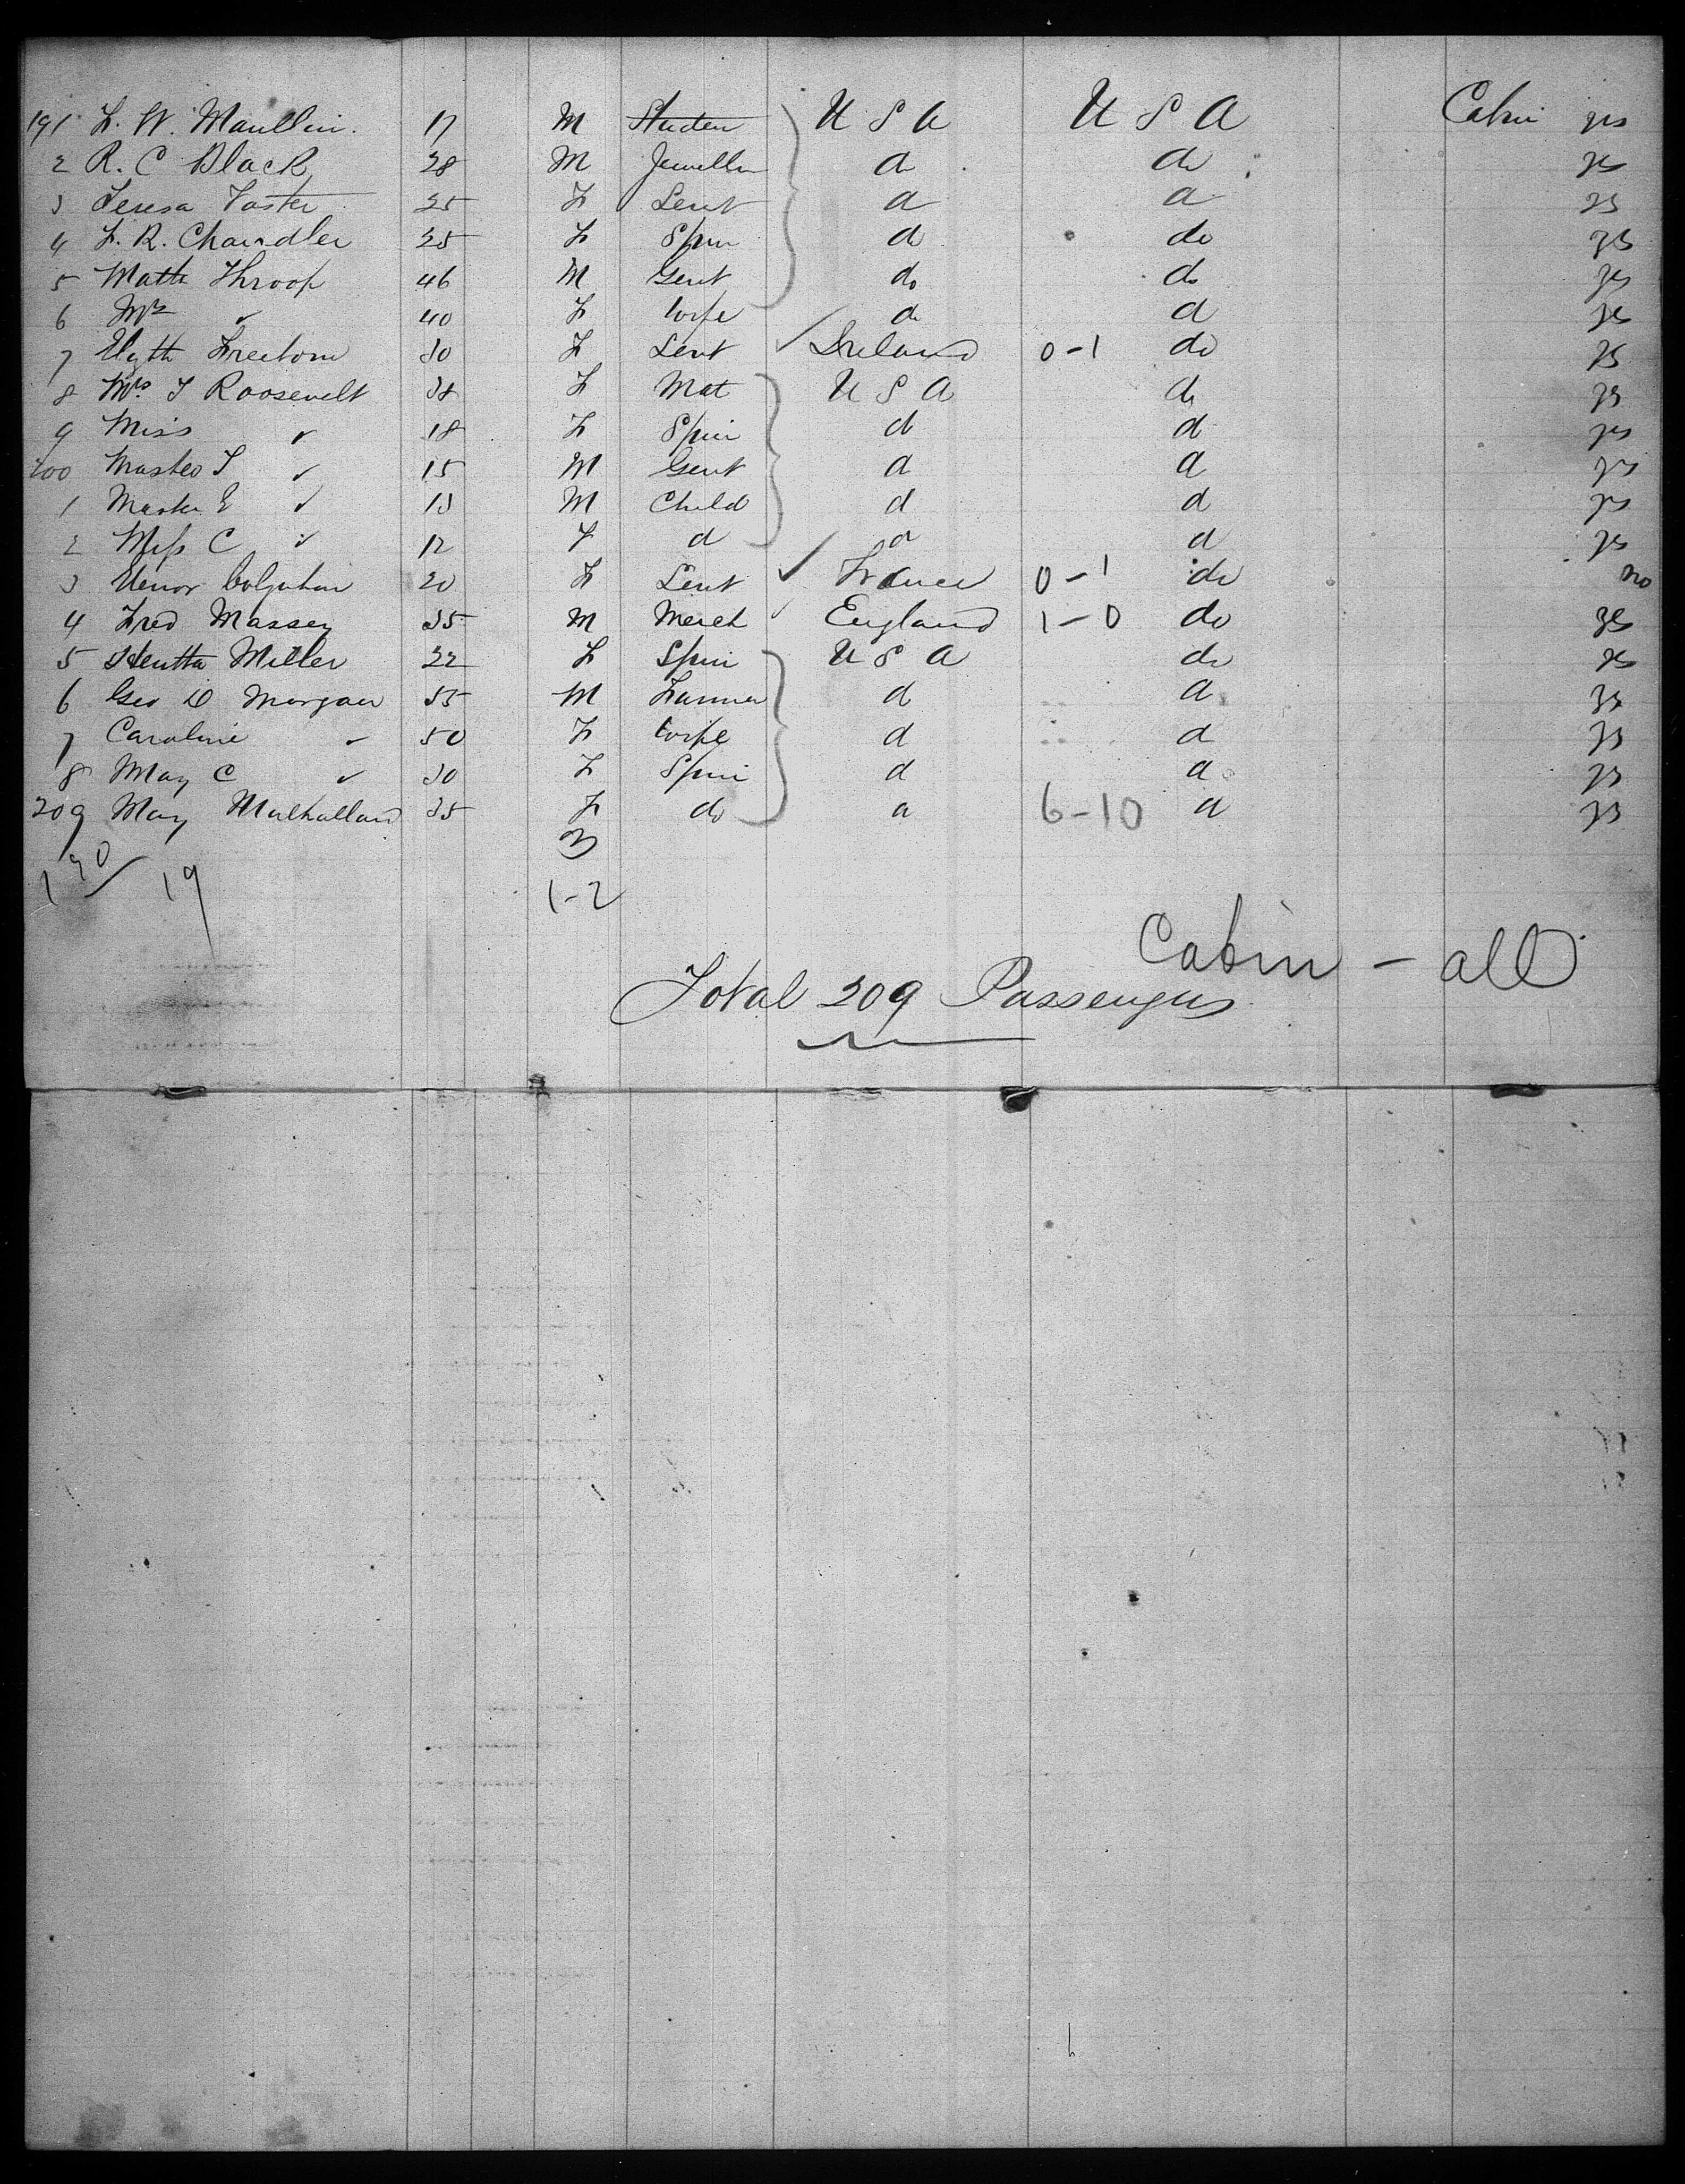 191 F. W. Maullin. 17 M Studen U S A U S A Cabin yes
2 R. C Black 28 M Jeweller do do yes
3 Teresa Foster 25 F Servt d d yes
4 F. R. Chandler 25 F Spin do do yes
5 Matth Throop 46 M Gent do do yes
6 Mrs " 40 F Wife do d yes
7 Elyth Freetom 30 F Servt Ireland 0-1 do yes
8 Mrs T Roosevelt 38 F Mat U S A do yes
9 Miss " 18 F Spin d d yes
200 Master T " 15 M Gent d d yes
1 Master E " 13 M Child d d yes
2 Miss C " 12 F d d d yes
3 20 F Servt France 0-1 do no
4 Fred Massey 35 M Merch England 1-0 do yes
5 Miller 22 F Spin U S A do yes
6 Geo D Morgan 55 M Farmer d d yes
7 Caroline " 50 F Wife d d yes
8 May C " 30 F Spin d d yes
209 May Mulholland 35 F do d 6-10 d yes
3
190/19
1-2
Cabin - all
Total 209 Passengers